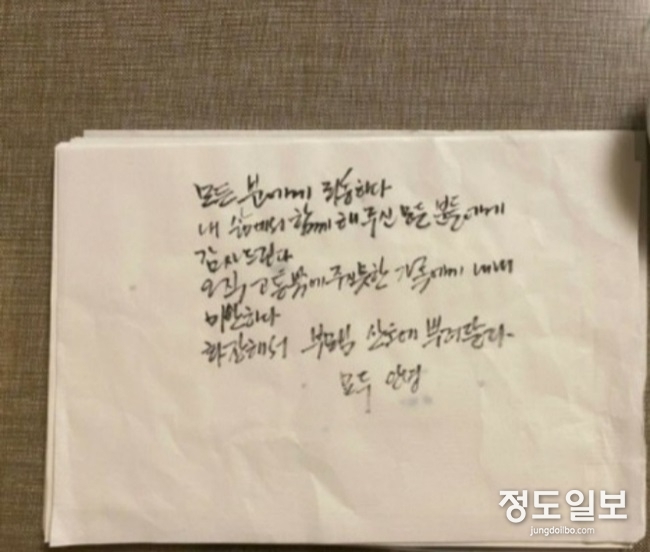 모든 분에게 죄송하다
내 삶에서 함께 해 주신 모든 분들에게
감사드린다
오직 고통밖에 주지 못한 가족에게 내내
미안하다
화장해서 부모님 산소에 뿌려달라.
모두 안녕
정도일보
jungdoilbo.com